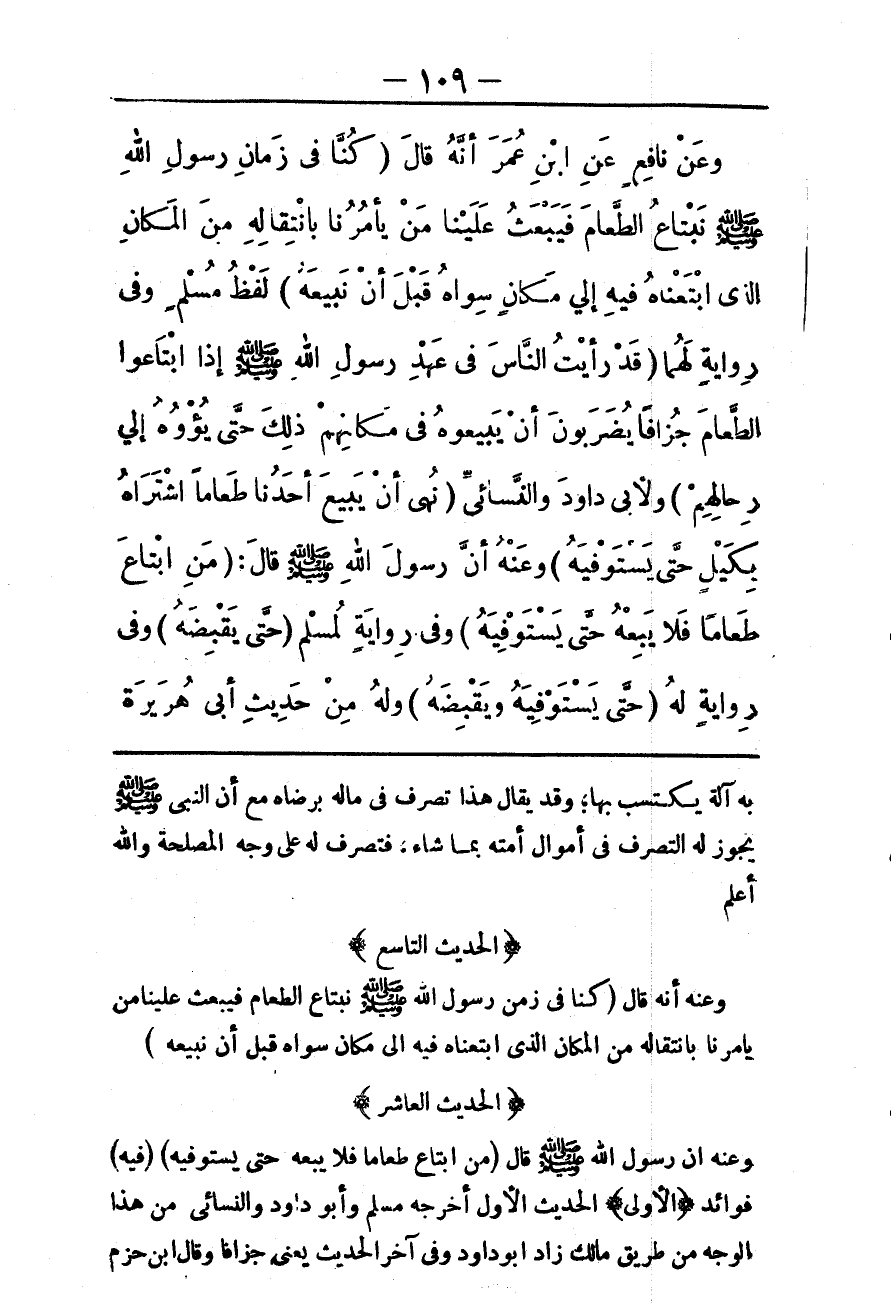 — ١٠٩ —
وعَنْ نافِعٍ عَنِ ابْنِ عُمَرَ أنَّهُ قالَ ( كُنَّا فى زَمانِ رسولِ اللهِ
ﷺ نَبْتاعُ الطَّعامَ فَيَبْعَثُ عَلَيْنا مَنْ يأمُرُنا بانْتِقالِهِ مِنَ المَكانِ
الذى ابْتَعْناهُ فيهِ إلي مَكانٍ سِواهُ قَبْلَ أنْ نَبيعَهُ ) لَفْظُ مُسْلمٍ وفى
رِوايةٍ لَهُما ( قَدْ رأيْتُ النَّاسَ فى عَهْدِ رسولِ اللهِ ﷺ إذا ابْتاعوا
الطَّعامَ جُزافًا يُضرَبونَ أنْ يَبيعوهُ فى مَكانِهِمْ ذلِكَ حتَّى يُؤْوُهُ إلي
رِحالِهِمْ ) ولأبى داودَ والنَّسائىِّ ( نُهى أنْ يَبيعَ أحَدُنا طَعاماً اشْتَرَاهُ
بِكَيْلٍ حتَّى يَسْتَوْفيَهُ ) وعَنْهُ أنَّ رسولَ اللهِ ﷺ قالَ : ( مَنِ ابْتاعَ
طَعامًا فَلا يَبِعْهُ حتَّى يَسْتَوْفِيَهُ ) وفى رِوايَةٍ لمُسْلمٍ ( حتَّى يَقْبِضَهُ ) وفى
رِوايةٍ لهُ ( حتَّى يَسْتَوْفِيَهُ ويَقْبِضَهُ ) ولهُ مِنْ حَدِيثِ أبى هُرَيرَةَ
به آلة يكتسب بها؛ وقد يقال هذا تصرف فى ماله برضاه مع أن النبى ﷺ
يجوز له التصرف فى أموال أمته بما شاء ؛ فتصرف له على وجه المصلحة والله
أعلم
﴿ الحديث التاسع ﴾
وعنه أنه قال ( كنا فى زمن رسول الله ﷺ نبتاع الطعام فيبعث علينا من
يامرنا بانتقاله من المكان الذى ابتعناه فيه الى مكان سواه قبل أن نبيعه )
﴿ الحديث العاشر ﴾
وعنه ان رسول الله ﷺ قال ( من ابتاع طعاما فلا يبعه حتى يستوفيه ) ( فيه )
فوائد ﴿ الأولى ﴾ الحديث الأول أخرجه مسلم وأبو داود والنسائى من هذا
الوجه من طريق مالك زاد ابو داود وفى آخر الحديث يعنى جزافا وقال ابن حزم